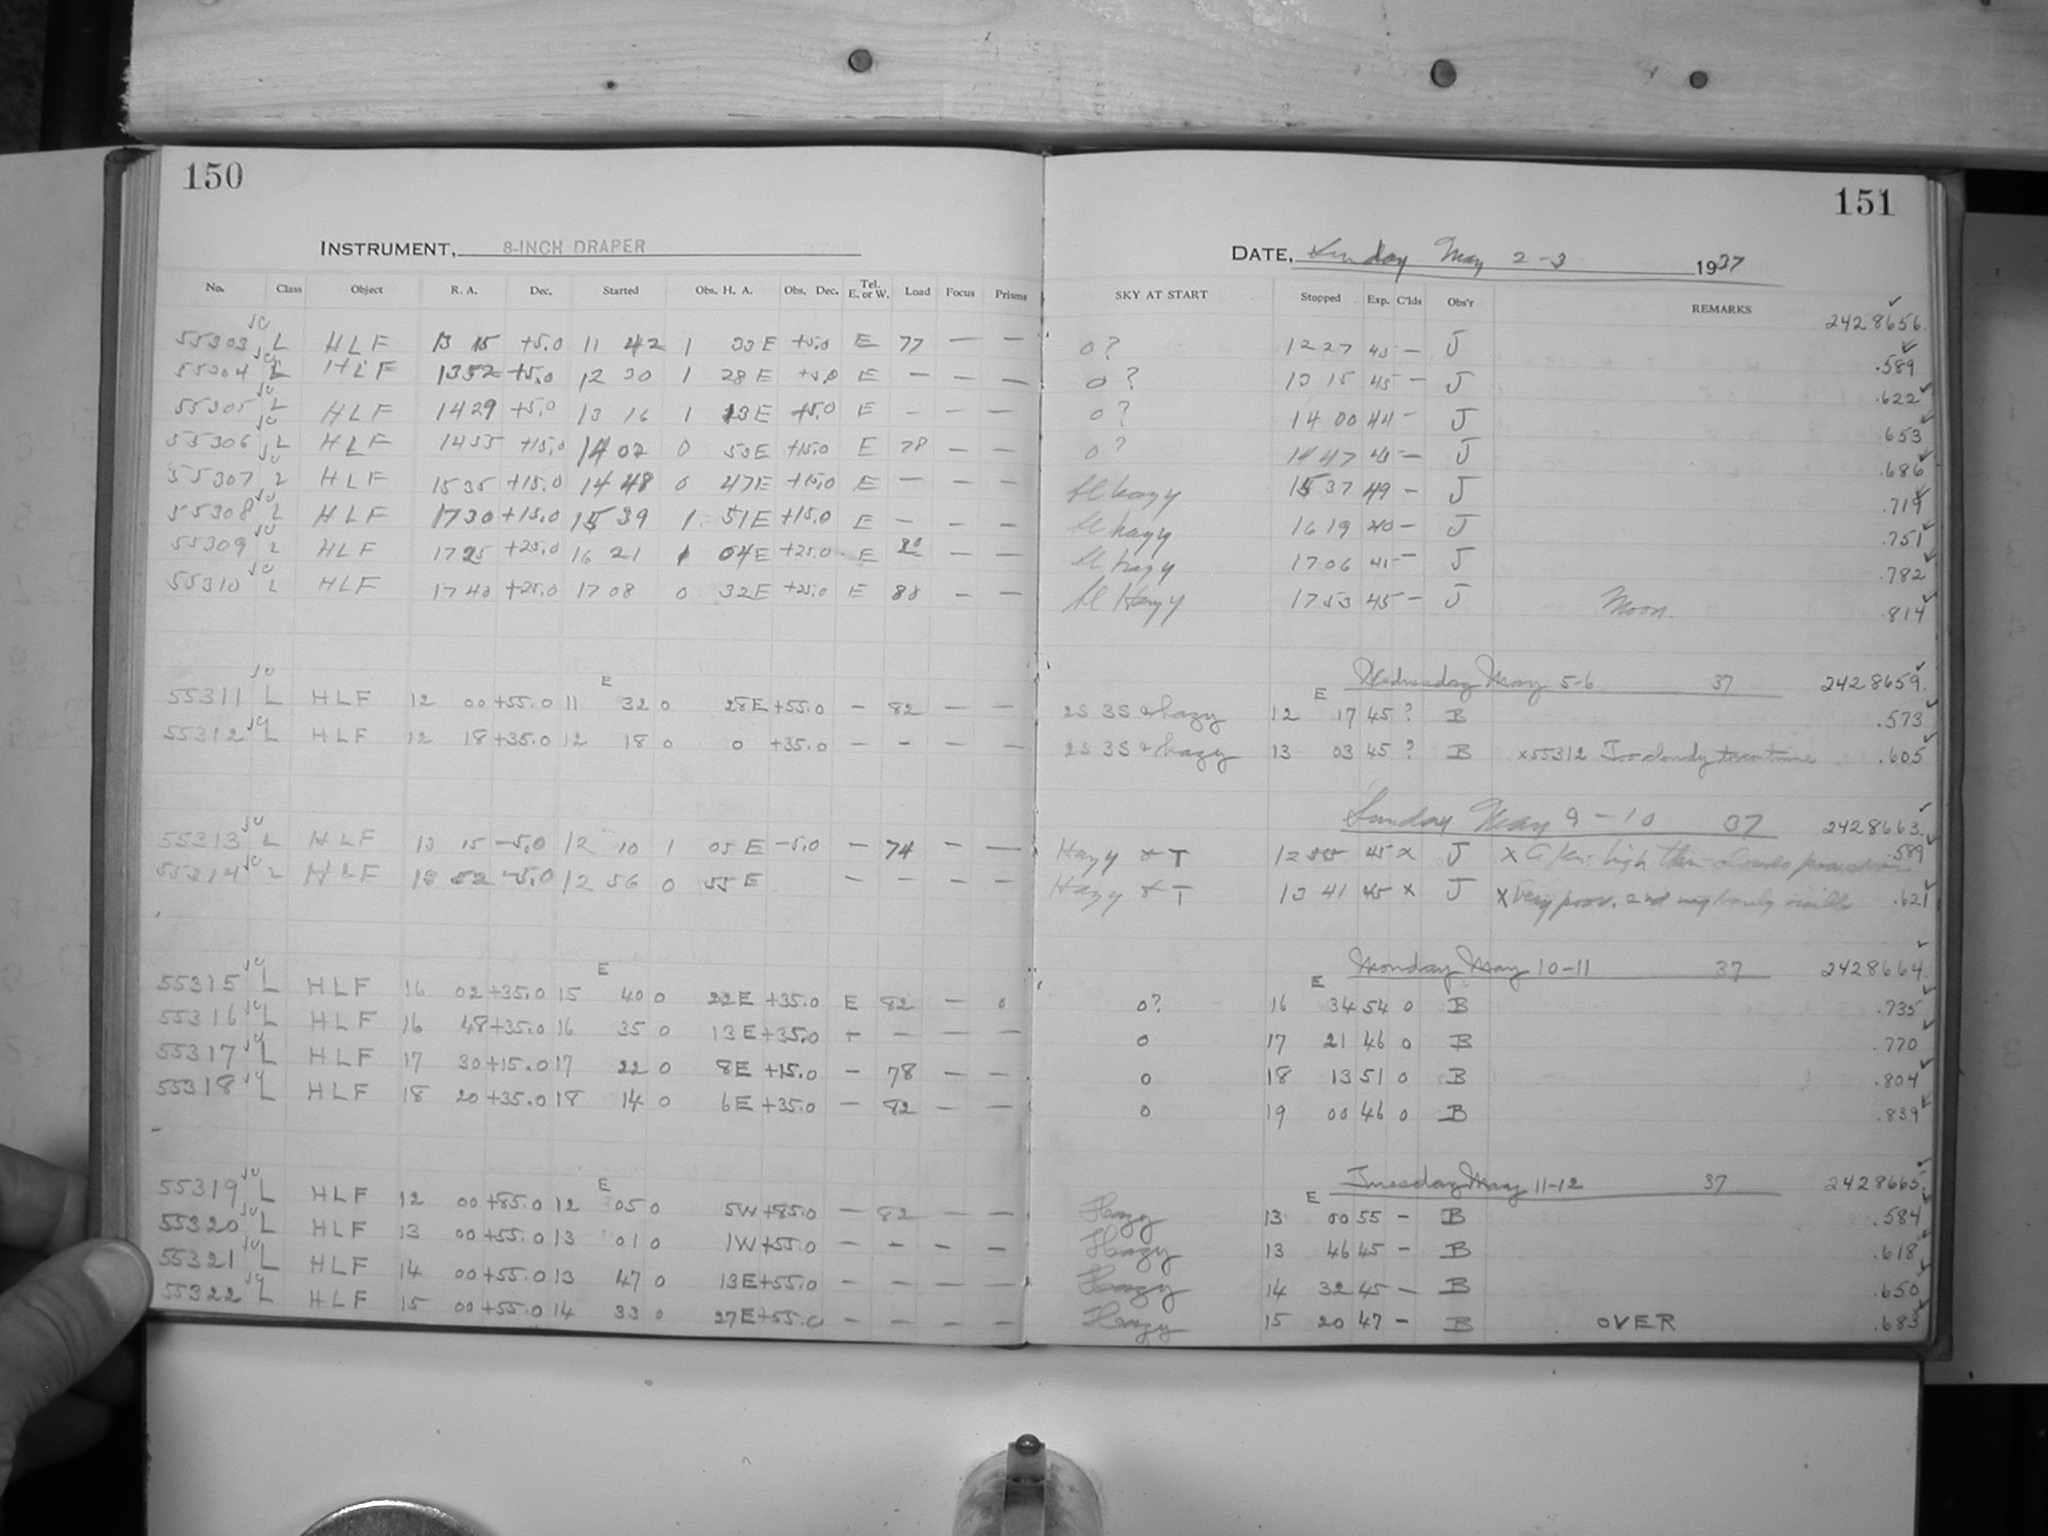 150
INSTRUMENT, 8-INCH DRAPER
No. Class Object R. A. Dec. Started Obs. H. A. Obs. Dec. Tel. E. or W. Load Focus Prisms
55303 L HLF 13 15 +5.0 11 42 1 33 E +5.0 E 77 — —
55304 L HLF 13 52 +5.0 12 30 1 28 E +5.0 E — — —
55305 L HLF 14 29 +5.0 13 16 1 13 E +5.0 E — — —
55306 L HLF 1455 +15.0 14 02 0 53 E +15.0 E 78 — —
55307 L HLF 15 35 +15.0 14 48 0 47 E +15.0 E — — —
55308 L HLF 1730 +15.0 15 39 1 51 E +15.0 E — — —
55309 L HLF 17 25 +25.0 16 21 1 04 E +25.0 E — —
55310 L HLF 17 40 +25.0 17 08 0 32 E +25.0 E 80 — —
55311 L HLF 12 00 +55.0 11 E 32 0 28 E +55.0 — 82 — —
55312 L HLF 12 18 +35.0 12 18 0 0 +35.0 — — — —
55313 L HLF 13 15 -5.0 12 10 1 05 E -5.0 — 74 — —
55314 L HLF 13 52 -5.0 12 56 0 55 E — — — —
55315 L HLF 16 02 +35.0 15 E 40 0 22 E +35.0 E 82 — 0
55316 L HLF 16 48 +35.0 16 35 0 13 E +35.0 — — — —
55317 L HLF 17 30 +15.0 17 22 0 8 E +15.0 — 78 — —
55318 L HLF 18 20 +35.0 18 14 0 6 E +35.0 — 82 — —
55319 L HLF 12 00 +85.0 12 E 05 0 5 W +85.0 — 82 — —
55320 L HLF 13 00 +55.0 13 01 0 1 W +55.0 — — — —
55321 L HLF 14 00 +55.0 13 47 0 13 E +55.0 — — — —
55322 L HLF 15 00 +55.0 14 33 0 27 E +55.0 — — — —
151
DATE, Sunday May 2-3 1937
SKY AT START Stopped Exp. C'lds Obs'r REMARKS
2428656.
0? 12 27 45 — J .589
0? 13 15 45 — J .622
0? 14 00 44 — J .653
0? 14 47 45 — J .686
Sl hazy 15 37 49 — J .719
Sl hazy 16 19 40 — J .751
Sl hazy 17 06 45 — J .782
Sl Hazy 17 53 45 — J Moon. .814
Wednesday May 5-6 37 2428659.
2S 3S & hazy 12 E 17 45 ? B .573
2S 3S & hazy 13 03 45 ? B x55312 Too cloudy to continue .605
Sunday May 9-10 37 2428663.
Hazy & T 12 55 45 x J x A few high thin clouds .589
Hazy & T 13 41 45 x J x Very poor. 2nd mag barely visible .621
Monday May 10-11 37 2428664.
0? 16 E 34 54 0 B .735
0 17 21 46 0 B .770
0 18 13 51 0 B .804
0 19 00 46 0 B .839
Tuesday May 11-12 37 2428665.
Hazy 13 E 00 55 — B .584
Hazy 13 46 45 — B .618
Hazy 14 32 45 — B .650
Hazy 15 20 47 — B OVER .683